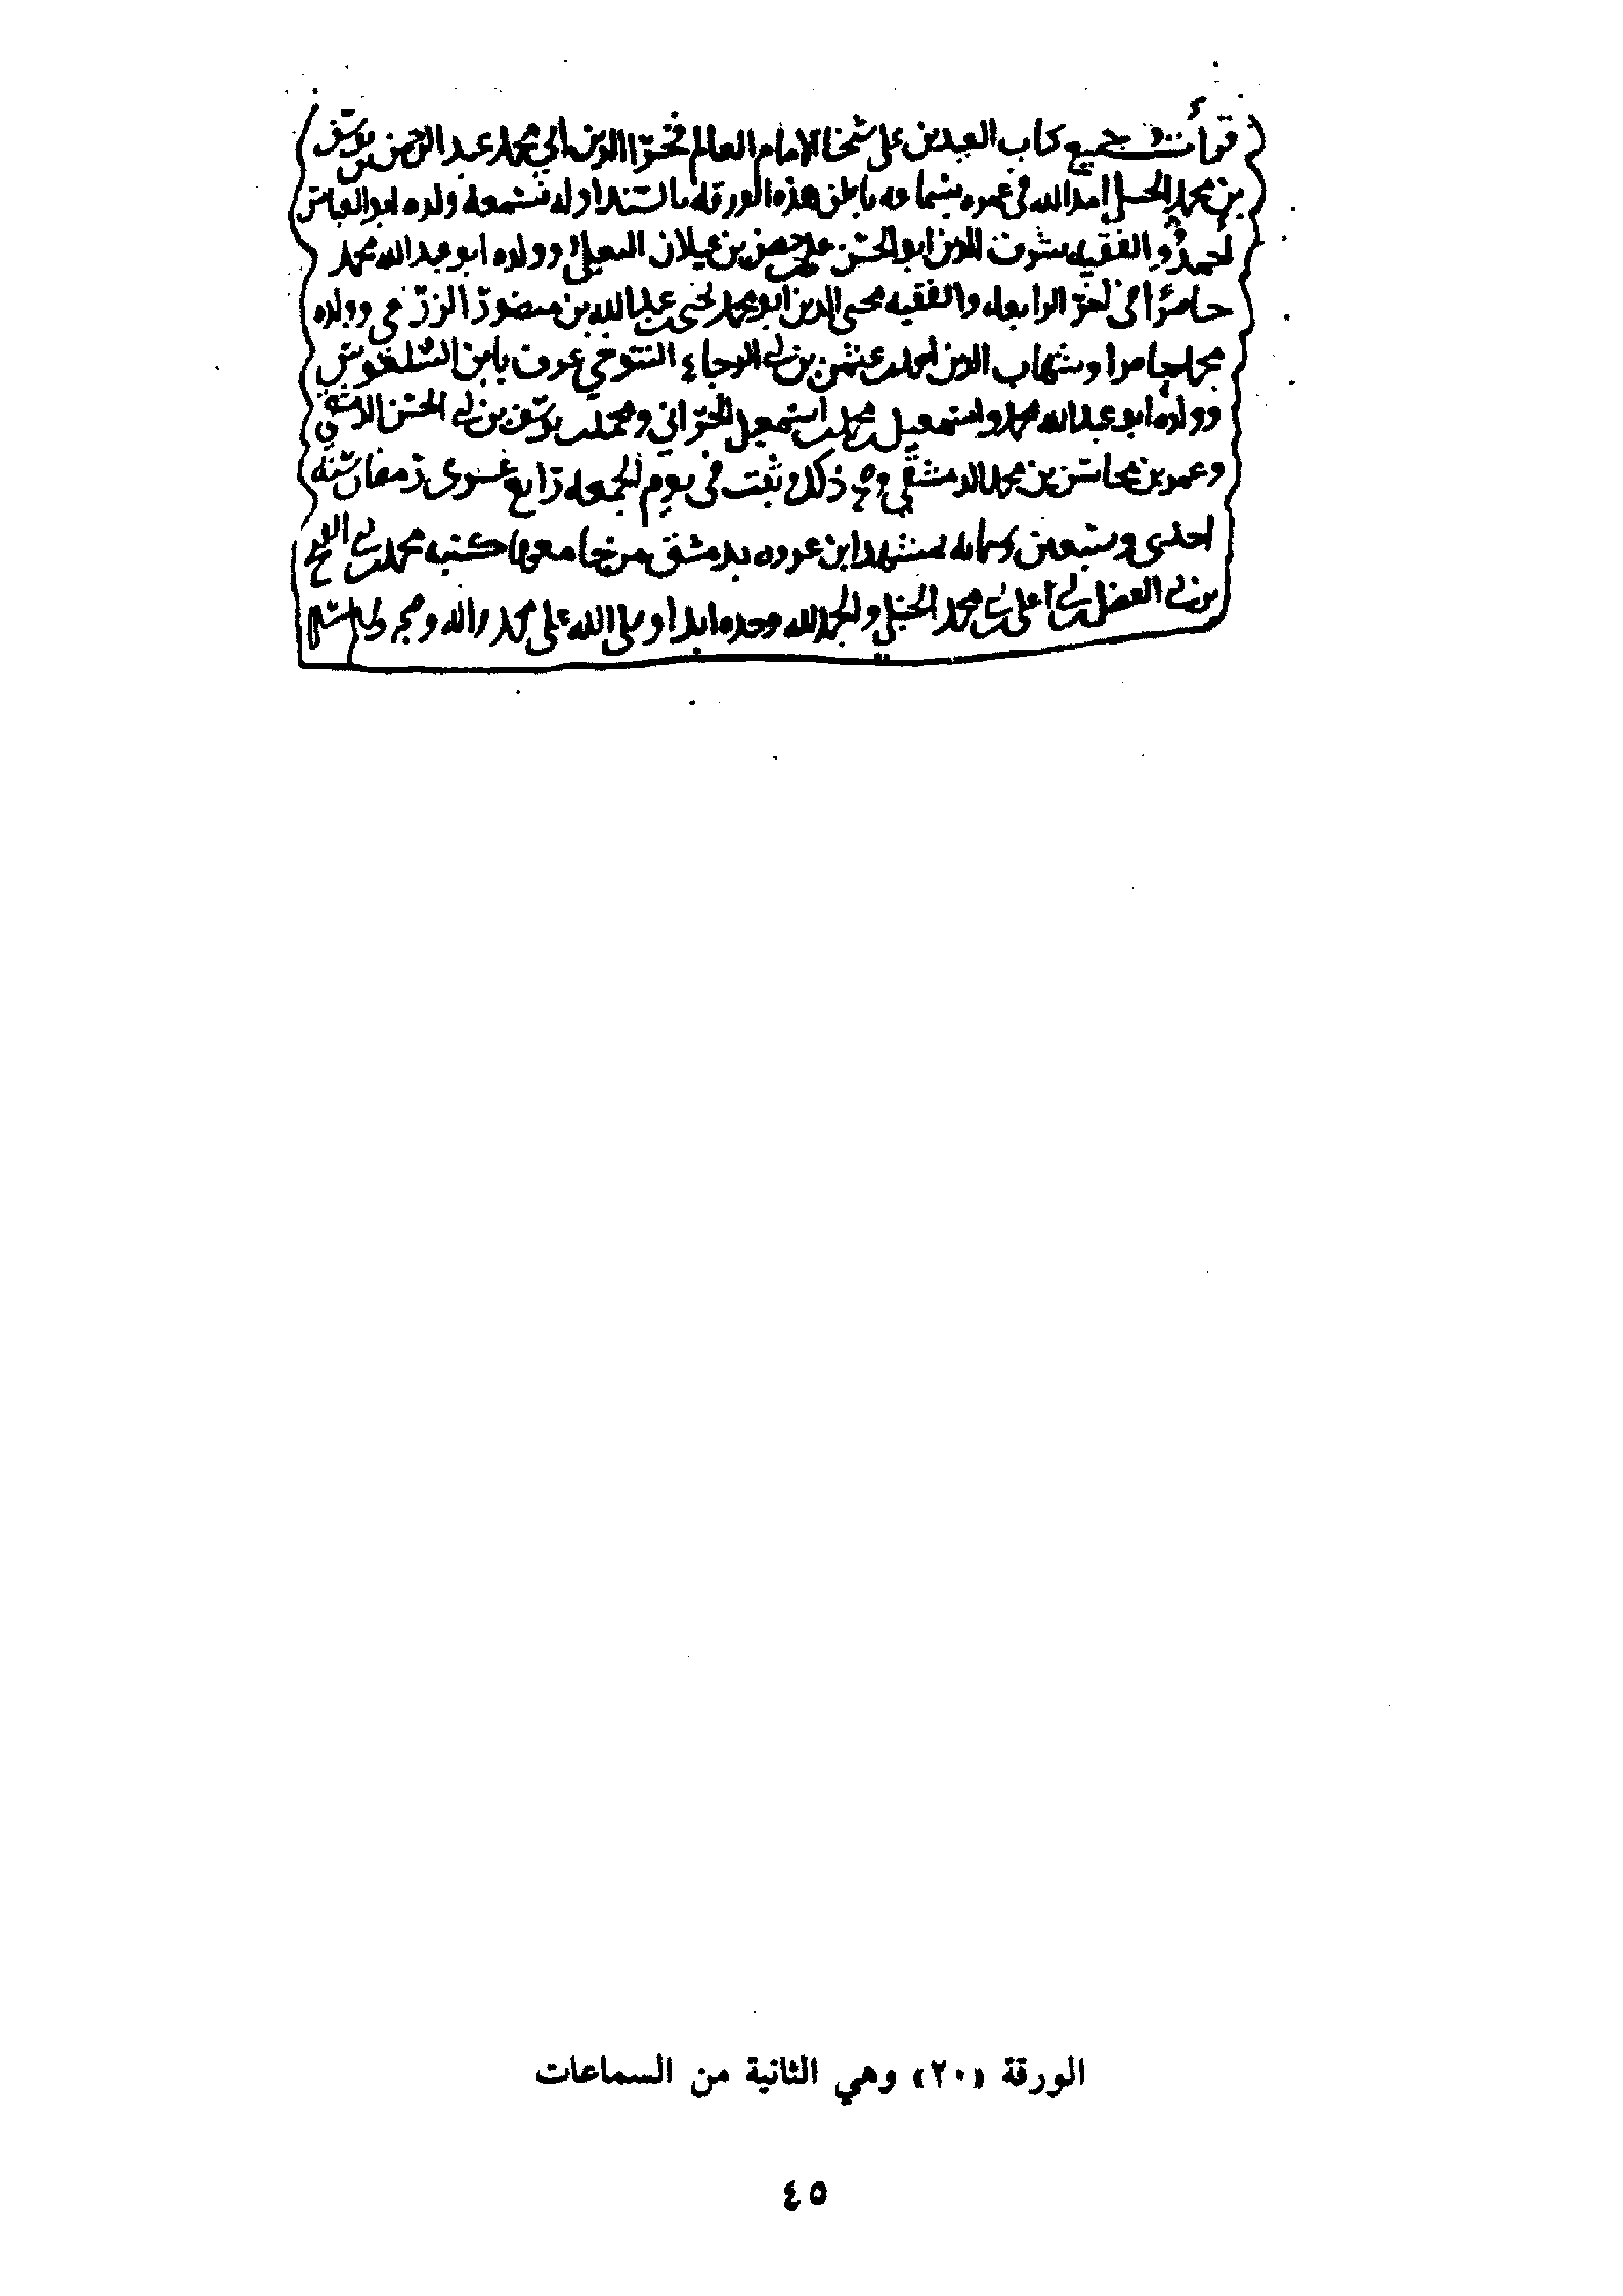 قرأت جميع كتاب العيدين على شيخنا الإمام العالم فخر الدين أبي محمد عبد الرحمن بن يوسف
بن محمد الحنبلي أمد الله في عمره بسماعه باطن هذه الورقة فسمعه ولده أبو العباس
أحمد والفقيه شرف الدين أبو الحسن علي بن عيلان البعلي وولده أبو عبد الله محمد
حاضرًا في آخر الرابعة والفقيه محيي الدين أبو محمد يحيى بن عبد الله بن منصور الزرعي وولده
محمد حاضرا وشهاب الدين أحمد بن عثمن بن أبي الرجاء التنوخي عرف بابن السلعوس
وولده أبو عبد الله محمد واسمعيل بن محمد بن اسمعيل الحراني ومحمد بن يوسف بن أبي الحسن
وعمر بن محاسن بن محمد الدمشقي وصح ذلك وثبت في يوم الجمعة رابع عشري رمضان سنة
احدى وسبعين وستمائة بمشهد ابن عروه بدمشق من جامعها كتبه محمد بن أبي الفتح
بن أبي الفضل بن أبي علي بن أبي محمد الحنبلي والحمد لله وحده أبدا وصلى الله على محمد وآله وصحبه وسلم
الورقة «٢٠» وهي الثانية من السماعات
٤٥